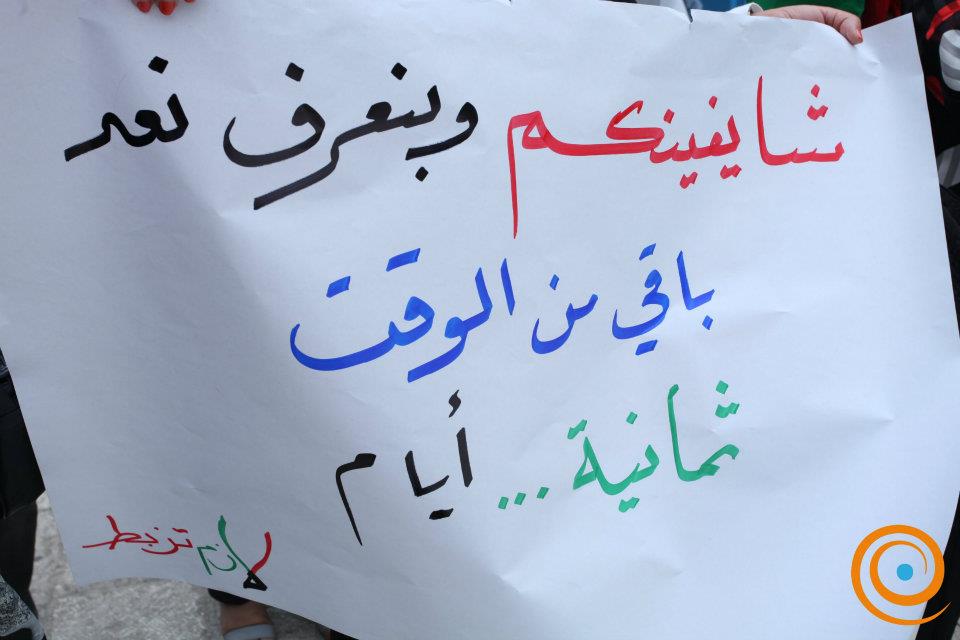 شايفينكم وبنعرف نعد
باقي من الوقت
ثمانية... أيام
لازم تزبط